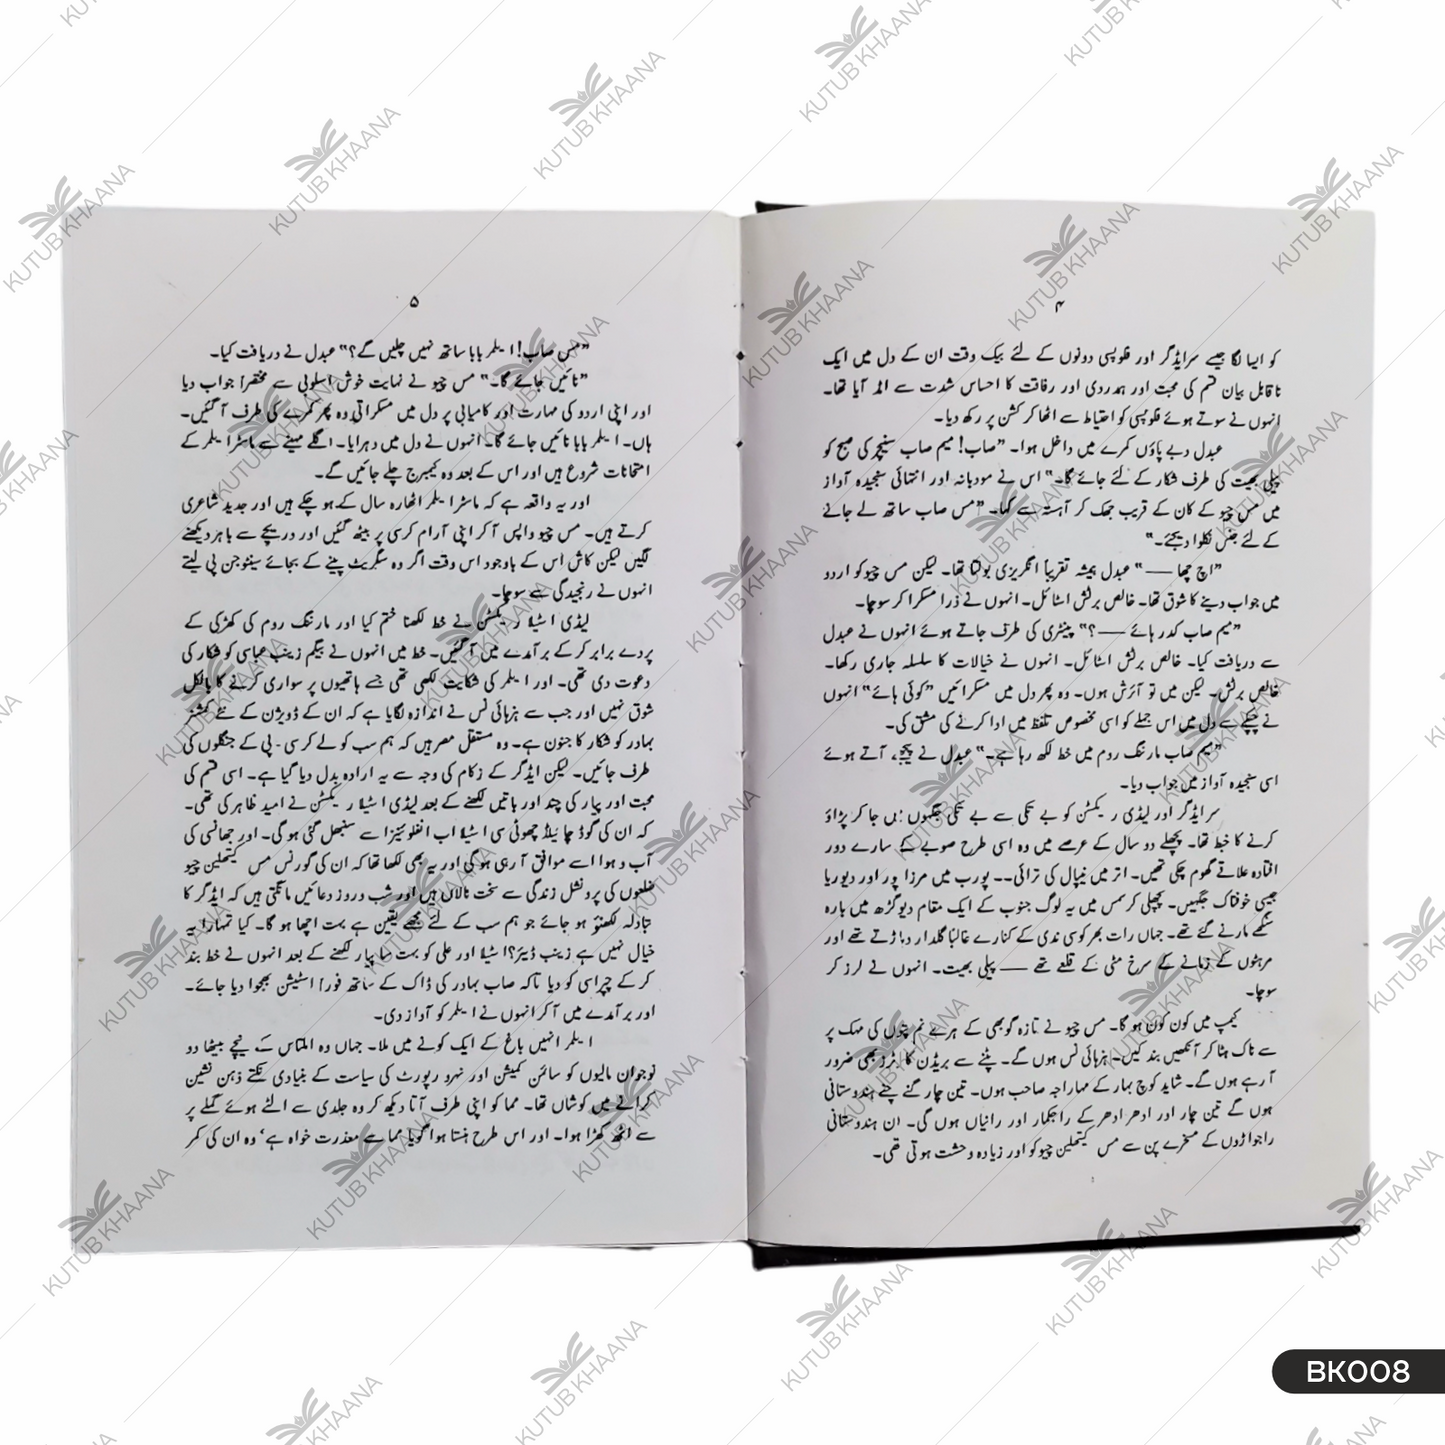 ۴
کو ایسا لگا جیسے سر ایڈگر اور فلوپسی دونوں کے لئے بیک وقت ان کے دل میں ایک
ناقابل بیان قسم کی محبت اور ہمدردی اور رفاقت کا احساس شدت سے امڈ آیا تھا۔
انہوں نے سوتے ہوئے فلوپسی کو احتیاط سے اٹھا کر کشن پر رکھ دیا۔
عبدل دبے پاؤں کمرے میں داخل ہوا۔ ”صاب! میم صاب سنیچر کی صبح کو
پیلی بھیت کی طرف شکار کے لئے جائے گا۔“ اس نے مودبانہ اور انتہائی سنجیدہ آواز
میں مس چیو کے کان کے قریب جھک کر آہستہ سے کہا۔ ”مس صاب ساتھ لے جانے
کے لئے جنس نکلوا دیجئے۔“
”اچ چھا —— “ عبدل ہمیشہ تقریباً انگریزی بولتا تھا۔ لیکن مس چیو کو اردو
میں جواب دینے کا شوق تھا۔ خالص برٹش اسٹائل۔ انہوں نے ذرا مسکرا کر سوچا۔
”میم صاب کدر ہائے —— ؟“ پینٹری کی طرف جاتے ہوئے انہوں نے عبدل
سے دریافت کیا۔ خالص برٹش اسٹائل۔ انہوں نے خیالات کا سلسلہ جاری رکھا۔
خالص برٹش۔ لیکن میں تو آئرش ہوں۔ وہ پھر دل میں مسکرائیں ”کوئی ہائے“ انہوں
نے چپکے سے دل میں اس جملے کو اسی مخصوص تلفظ میں ادا کرنے کی مشق کی۔
”میم صاب مارننگ روم میں خط لکھ رہا ہے۔“ عبدل نے پیچھے آتے ہوئے
اسی سنجیدہ آواز میں جواب دیا۔
سر ایڈگر اور لیڈی ریکسٹن کو بے تکی سے بے تکی جگہوں میں جا کر پڑاؤ
کرنے کا خبط تھا۔ پچھلے دو سال کے عرصے میں وہ اسی طرح صوبے کے سارے دور
افتادہ علاقے گھوم چکی تھیں۔ اتر میں نیپال کی ترائی۔۔ پورب میں مرزا پور اور دیوریا
جیسی خوفناک جگہیں۔ پچھلی کرسمس میں یہ لوگ جنوب کے ایک مقام دیوگڑھ میں بارہ
سنگھے مارنے گئے تھے۔ جہاں رات بھر کوسی ندی کے کنارے غالباً گلدار دہاڑتے تھے اور
مرہٹوں کے زمانے کے سرخ مٹی کے قلعے تھے —— پیلی بھیت۔ انہوں نے لرز کر
سوچا۔
کیمپ میں کون کون ہو گا۔ مس چیو نے تازہ گوبھی کے ہرے نم پتوں کی مہک پر
سے ناک ہٹا کر آنکھیں بند کیں۔ ہزہائی نس ہوں گے۔ پٹنے سے بریڈن کارٹرز بھی ضرور
آ رہے ہوں گے۔ شاید کوچ بہار کے مہاراجہ صاحب ہوں۔ تین چار گنے چنے ہندوستانی
ہوں گے تین چار اور ادھر ادھر کے راجکمار اور رانیاں ہوں گی۔ ان ہندوستانی
راجواڑوں کے مسخرے پن سے مس کیتھلین چیو کو اور زیادہ وحشت ہوتی تھی۔
۵
”مس صاب! ایلمر بابا ساتھ نہیں چلیں گے؟“ عبدل نے دریافت کیا۔
”نائیں جائے گا۔“ مس چیو نے نہایت خوش اسلوبی سے مختصراً جواب دیا
اور اپنی اردو کی مہارت اور کامیابی پر دل میں مسکراتی وہ پھر کمرے کی طرف آ گئیں۔
ہاں۔ ایلمر بابا نائیں جائے گا۔ انہوں نے دل میں دہرایا۔ اگلے مہینے سے ماسٹر ایلمر کے
امتحانات شروع ہیں اور اس کے بعد وہ کیمبرج چلے جائیں گے۔
اور یہ واقعہ ہے کہ ماسٹر ایلمر اٹھارہ سال کے ہو چکے ہیں اور جدید شاعری
کرتے ہیں۔ مس چیو واپس آ کر اپنی آرام کرسی پر بیٹھ گئیں اور دریچے سے باہر دیکھنے
لگیں لیکن کاش اس کے باوجود اس وقت اگر وہ سگریٹ پینے کے بجائے سینٹوجن پی لیتے
انہوں نے رنجیدگی سے سوچا۔
لیڈی اسٹیلا ریکسٹن نے خط لکھنا ختم کیا اور مارننگ روم کی کھڑکی کے
پردے برابر کر کے برآمدے میں آ گئیں۔ خط میں انہوں نے بیگم زینب عباسی کو شکار کی
دعوت دی تھی۔ اور ایلمر کی شکایت لکھی تھی جسے ہاتھیوں پر سواری کرنے کا بالکل
شوق نہیں اور جب سے ہزہائی نس نے اندازہ لگایا ہے کہ ان کے ڈویژن کے نئے کمشنر
بہادر کو شکار کا جنون ہے۔ وہ مستقل مصر ہیں کہ ہم سب کو لے کر سی۔ پی کے جنگلوں کی
طرف جائیں۔ لیکن ایڈگر کے زکام کی وجہ سے یہ ارادہ بدل دیا گیا ہے۔ اسی قسم کی
محبت اور پیار کی چند اور باتیں لکھنے کے بعد لیڈی اسٹیلا ریکسٹن نے امید ظاہر کی تھی۔
کہ ان کی گوڈ چائیلڈ چھوٹی سی اسٹیلا اب انفلوئنزا سے سنبھل گئی ہو گی۔ اور جھانسی کی
آب و ہوا اسے موافق آ رہی ہو گی اور یہ بھی لکھا تھا کہ ان کی گورنس مس کیتھلین چیو
ضلعوں کی پرونشل زندگی سے سخت نالاں ہیں اور شب و روز دعائیں مانگتی ہیں کہ ایڈگر کا
تبادلہ لکھنؤ ہو جائے جو ہم سب کے لئے مجھے یقین ہے بہت اچھا ہو گا۔ کیا تمہارا یہ
خیال نہیں ہے زینب ڈیئر؟ اسٹیلا اور علی کو بہت سا پیار لکھنے کے بعد انہوں نے خط بند
کر کے چپراسی کو دیا تاکہ صاب بہادر کی ڈاک کے ساتھ فوراً اسٹیشن بھجوا دیا جائے۔
اور برآمدے میں آ کر انہوں نے ایلمر کو آواز دی۔
ایلمر انہیں باغ کے ایک کونے میں ملا۔ جہاں وہ املتاس کے نیچے بیٹھا دو
نوجوان مالیوں کو سائمن کمیشن اور نہرو رپورٹ کی سیاست کے بنیادی نکتے ذہن نشین
کرانے میں کوشاں تھا۔ مما کو اپنی طرف آتا دیکھ کر وہ جلدی سے الٹے ہوئے گملے پر
سے اٹھ کھڑا ہوا۔ اور اس طرح ہنستا ہوا گویا مما سے معذرت خواہ ہے‘ وہ ان کی کمر
KUTUB KHAANA
BK008